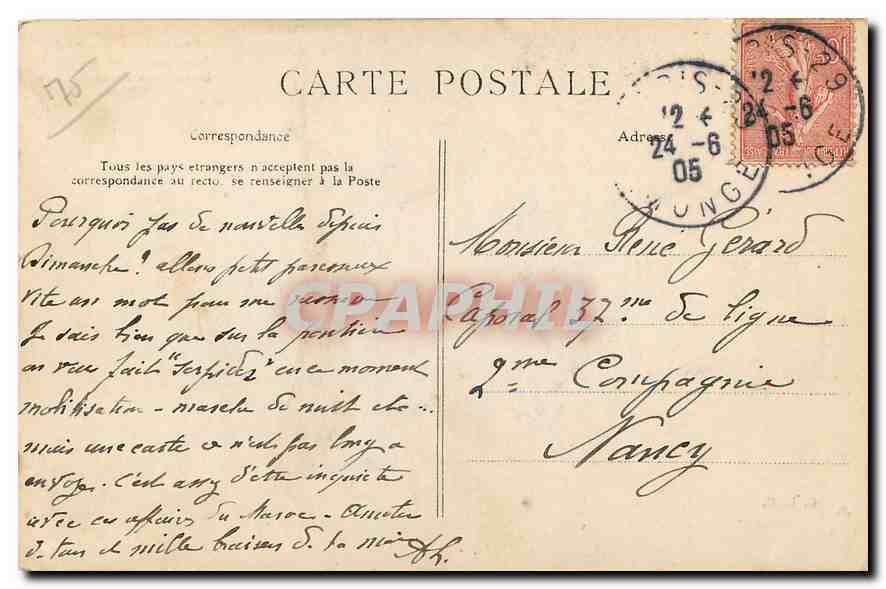 75
CARTE POSTALE
Correspondance
Adresse
Tous les pays etrangers n'acceptent pas la
correspondance au recto, se renseigner à la Poste
12
24 -6
05
MONGE
12
24 -6
05
29
10
Pourquoi pas de nouvelle depuis
Dimanche? allons petit paresseux
vite un mot pour me rassurer
Je sais bien que sur la frontière
on vous fait en ce moment
mobilisation - marche de nuit etc...
mais une carte ce n'est pas long a
envoyer. C'est assez d'être inquiete
avec ces affaires du Maroc -
mille baisers de ta
Monsieur René Gérard
Caporal 37me de ligne
2me Compagnie
Nancy
CPAPHIL